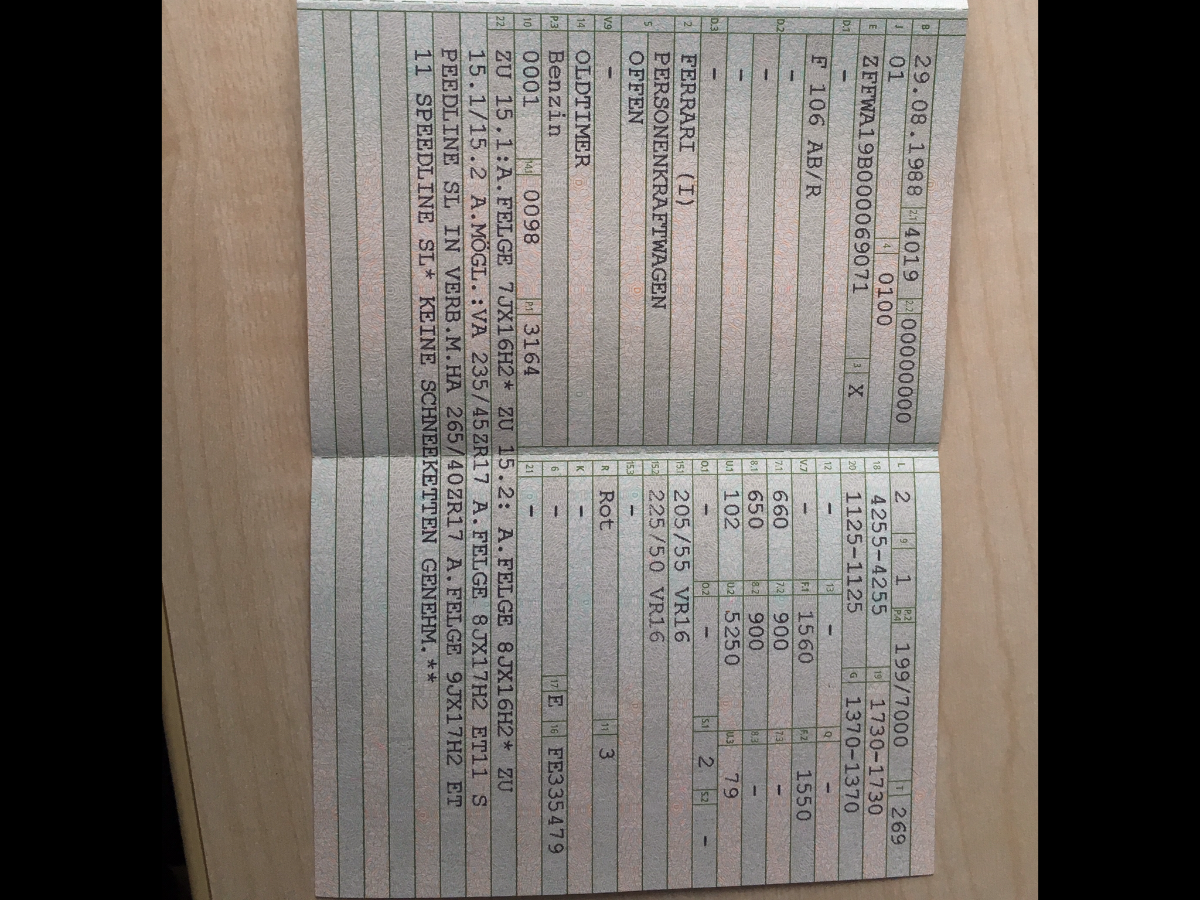 B 29.08.1988 2.1 4019 2.2 00000000
J 01 4 0100
E ZFFWA19B000069071 3 X
D.1 -
F 106 AB/R
D.2 -
-
-
D.3 -
2 FERRARI (I)
5 PERSONENKRAFTWAGEN
OFFEN
V.9 -
14 OLDTIMER
P.3 Benzin
10 0001 14.1 0098 P.1 3164
L 2 9 1 P.2 P.4 199/7000 T 269
18 4255-4255 19 1730-1730
20 1125-1125 G 1370-1370
12 - 13 - Q -
V.7 - F.1 1560 F.2 1550
7.1 660 7.2 900 7.3 -
8.1 650 8.2 900 8.3 -
U.1 102 U.2 5250 U.3 79
O.1 - O.2 - S.1 2 S.2 -
15.1 205/55 VR16
15.2 225/50 VR16
15.3 -
R Rot 11 3
K -
6 - 17 E 16 FE335479
21 -
22 ZU 15.1:A.FELGE 7JX16H2* ZU 15.2: A.FELGE 8JX16H2* ZU
15.1/15.2 A.MÖGL.:VA 235/45ZR17 A.FELGE 8JX17H2 ET11 S
PEEDLINE SL IN VERB.M.HA 265/40ZR17 A.FELGE 9JX17H2 ET
11 SPEEDLINE SL* KEINE SCHNEEKETTEN GENEHM.**